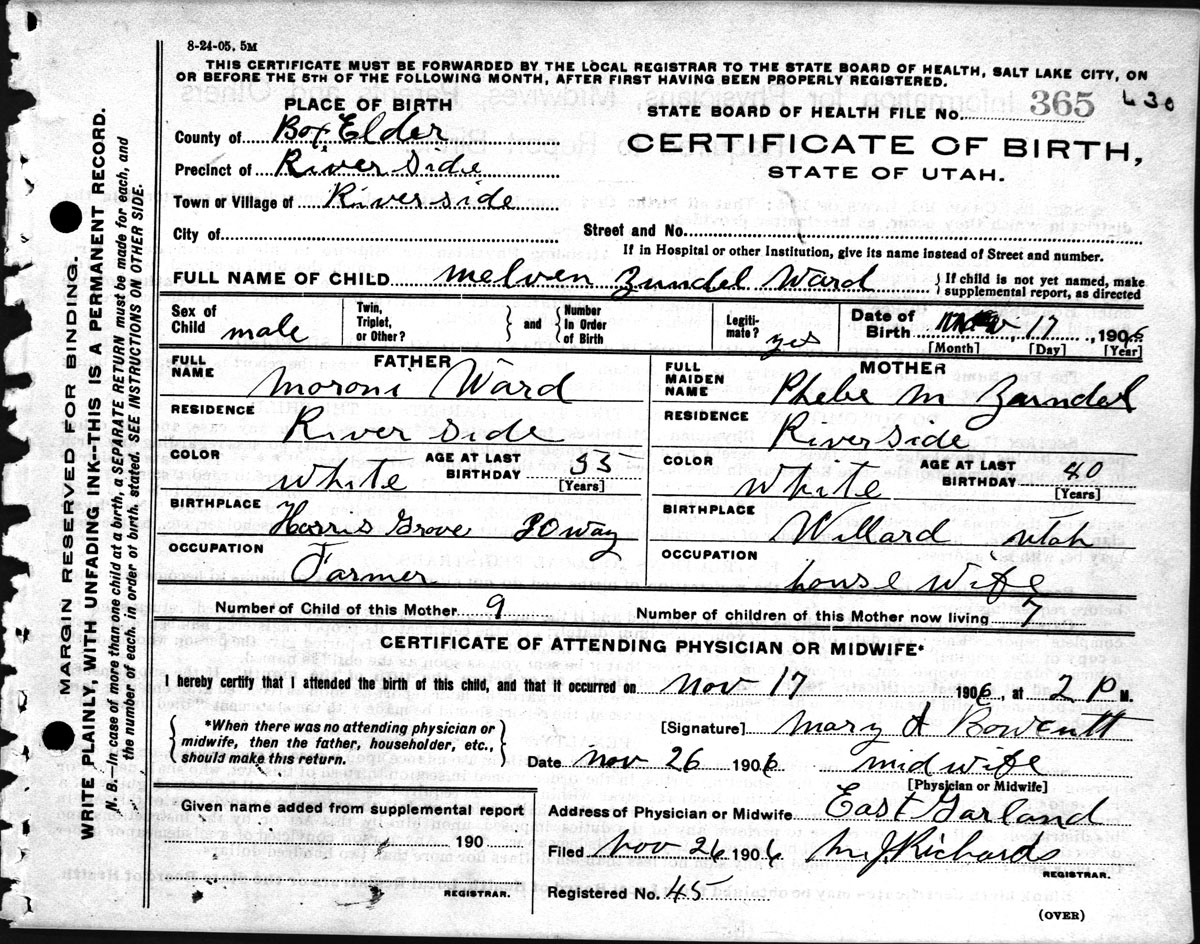 8-24-05, 5M
THIS CERTIFICATE MUST BE FORWARDED BY THE LOCAL REGISTRAR TO THE STATE BOARD OF HEALTH, SALT LAKE CITY, ON
OR BEFORE THE 5TH OF THE FOLLOWING MONTH, AFTER FIRST HAVING BEEN PROPERLY REGISTERED.
PLACE OF BIRTH
STATE BOARD OF HEALTH FILE No. 365 430
County of Box Elder
CERTIFICATE OF BIRTH,
Precinct of River Side
STATE OF UTAH.
Town or Village of Riverside
City of
Street and No.
If in Hospital or other Institution, give its name instead of Street and number.
FULL NAME OF CHILD Melven Zundel Ward { If child is not yet named, make
supplemental report, as directed
Sex of Child male
Twin, Triplet, or Other? } and { Number In Order of Birth
Legitimate? yes
Date of Birth Nov, 17, 1906
[Month] [Day] [Year]
FATHER
FULL NAME Moroni Ward
RESIDENCE River side
COLOR white AGE AT LAST BIRTHDAY 55
[Years]
BIRTHPLACE
Harris Grove
OCCUPATION
Farmer
MOTHER
FULL MAIDEN NAME Phebe M Zundel
RESIDENCE Riverside
COLOR white AGE AT LAST BIRTHDAY 40
[Years]
BIRTHPLACE
Willard Utah
OCCUPATION
house wife
Number of Child of this Mother 9 Number of children of this Mother now living 7
CERTIFICATE OF ATTENDING PHYSICIAN OR MIDWIFE*
I hereby certify that I attended the birth of this child, and that it occurred on Nov 17 1906, at 2 P M.
{ *When there was no attending physician or
midwife, then the father, householder, etc.,
should make this return. }
[Signature] Mary A Bowcutt
Date Nov 26 1906 midwife
[Physician or Midwife]
Given name added from supplemental report
190
REGISTRAR.
Address of Physician or Midwife East Garland
Filed Nov 26 1906 M. J. Richards
REGISTRAR.
Registered No. 45
(OVER)
MARGIN RESERVED FOR BINDING.
WRITE PLAINLY, WITH UNFADING INK--THIS IS A PERMANENT RECORD.
N. B.--In case of more than one child at a birth, a SEPARATE RETURN must be made for each, and
the number of each, in order of birth, stated. SEE INSTRUCTIONS ON OTHER SIDE.